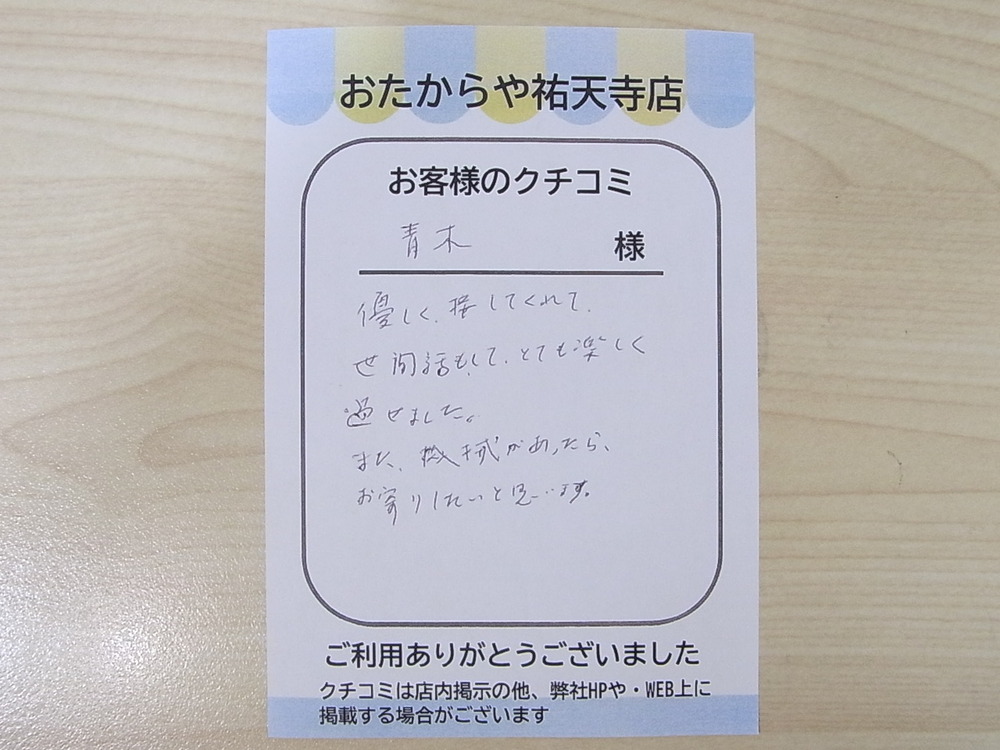 おたからや祐天寺店
お客様のクチコミ
青木 様
優しく、接してくれて、
世間話もして、とても楽しく
過せました。
また、機械があったら、
お寄りしたいと思います。
ご利用ありがとうございました
クチコミは店内掲示の他、弊社HPや・WEB上に
掲載する場合がございます